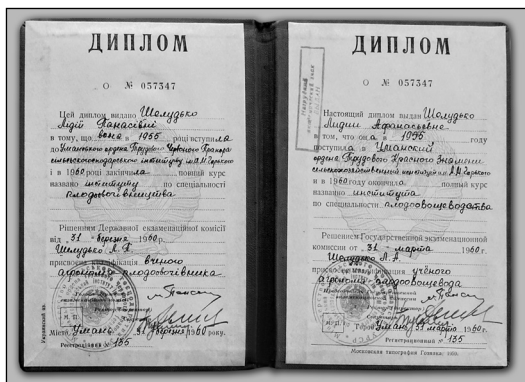 ДИПЛОМ
О № 057347
Цей диплом видано Шелудько
Лідії Панасівні
в тому, що вона в 1955 році вступила
до Уманського ордена Трудового Червоного Прапора
сільськогосподарського інституту ім. О.М. Горького
і в 1960 році закінчила повний курс
названо інституту по спеціальності
плодоовочівництва
Рішенням Державної екзаменаційної комісії
від „31“ березня 1960 р.
Шелудько Л. П.
присвоєна кваліфікація вченого
агронома плодоовочівника
М. П.
Місто Умань, 31 березня 1960 року.
Реєстраційний № 135
ДИПЛОМ
О № 057347
Настоящий диплом выдан Шелудько
Лидии Афанасьевне
в том, что она в 1955 году
поступила в Уманский
ордена Трудового Красного Знамени
сельскохозяйственный институт им. А.М. Горького
и в 1960 году окончила полный курс
названо института
по специальности плодоовощеводства
Решением Государственной экзаменационной
комиссии от „31“ марта 1960 г.
Шелудько Л. А.
присвоена квалификация учёного
агронома плодоовощевода
М. П.
Город Умань, 31 марта 1960 г.
Регистрационный № 135
Московская типография Гознака.